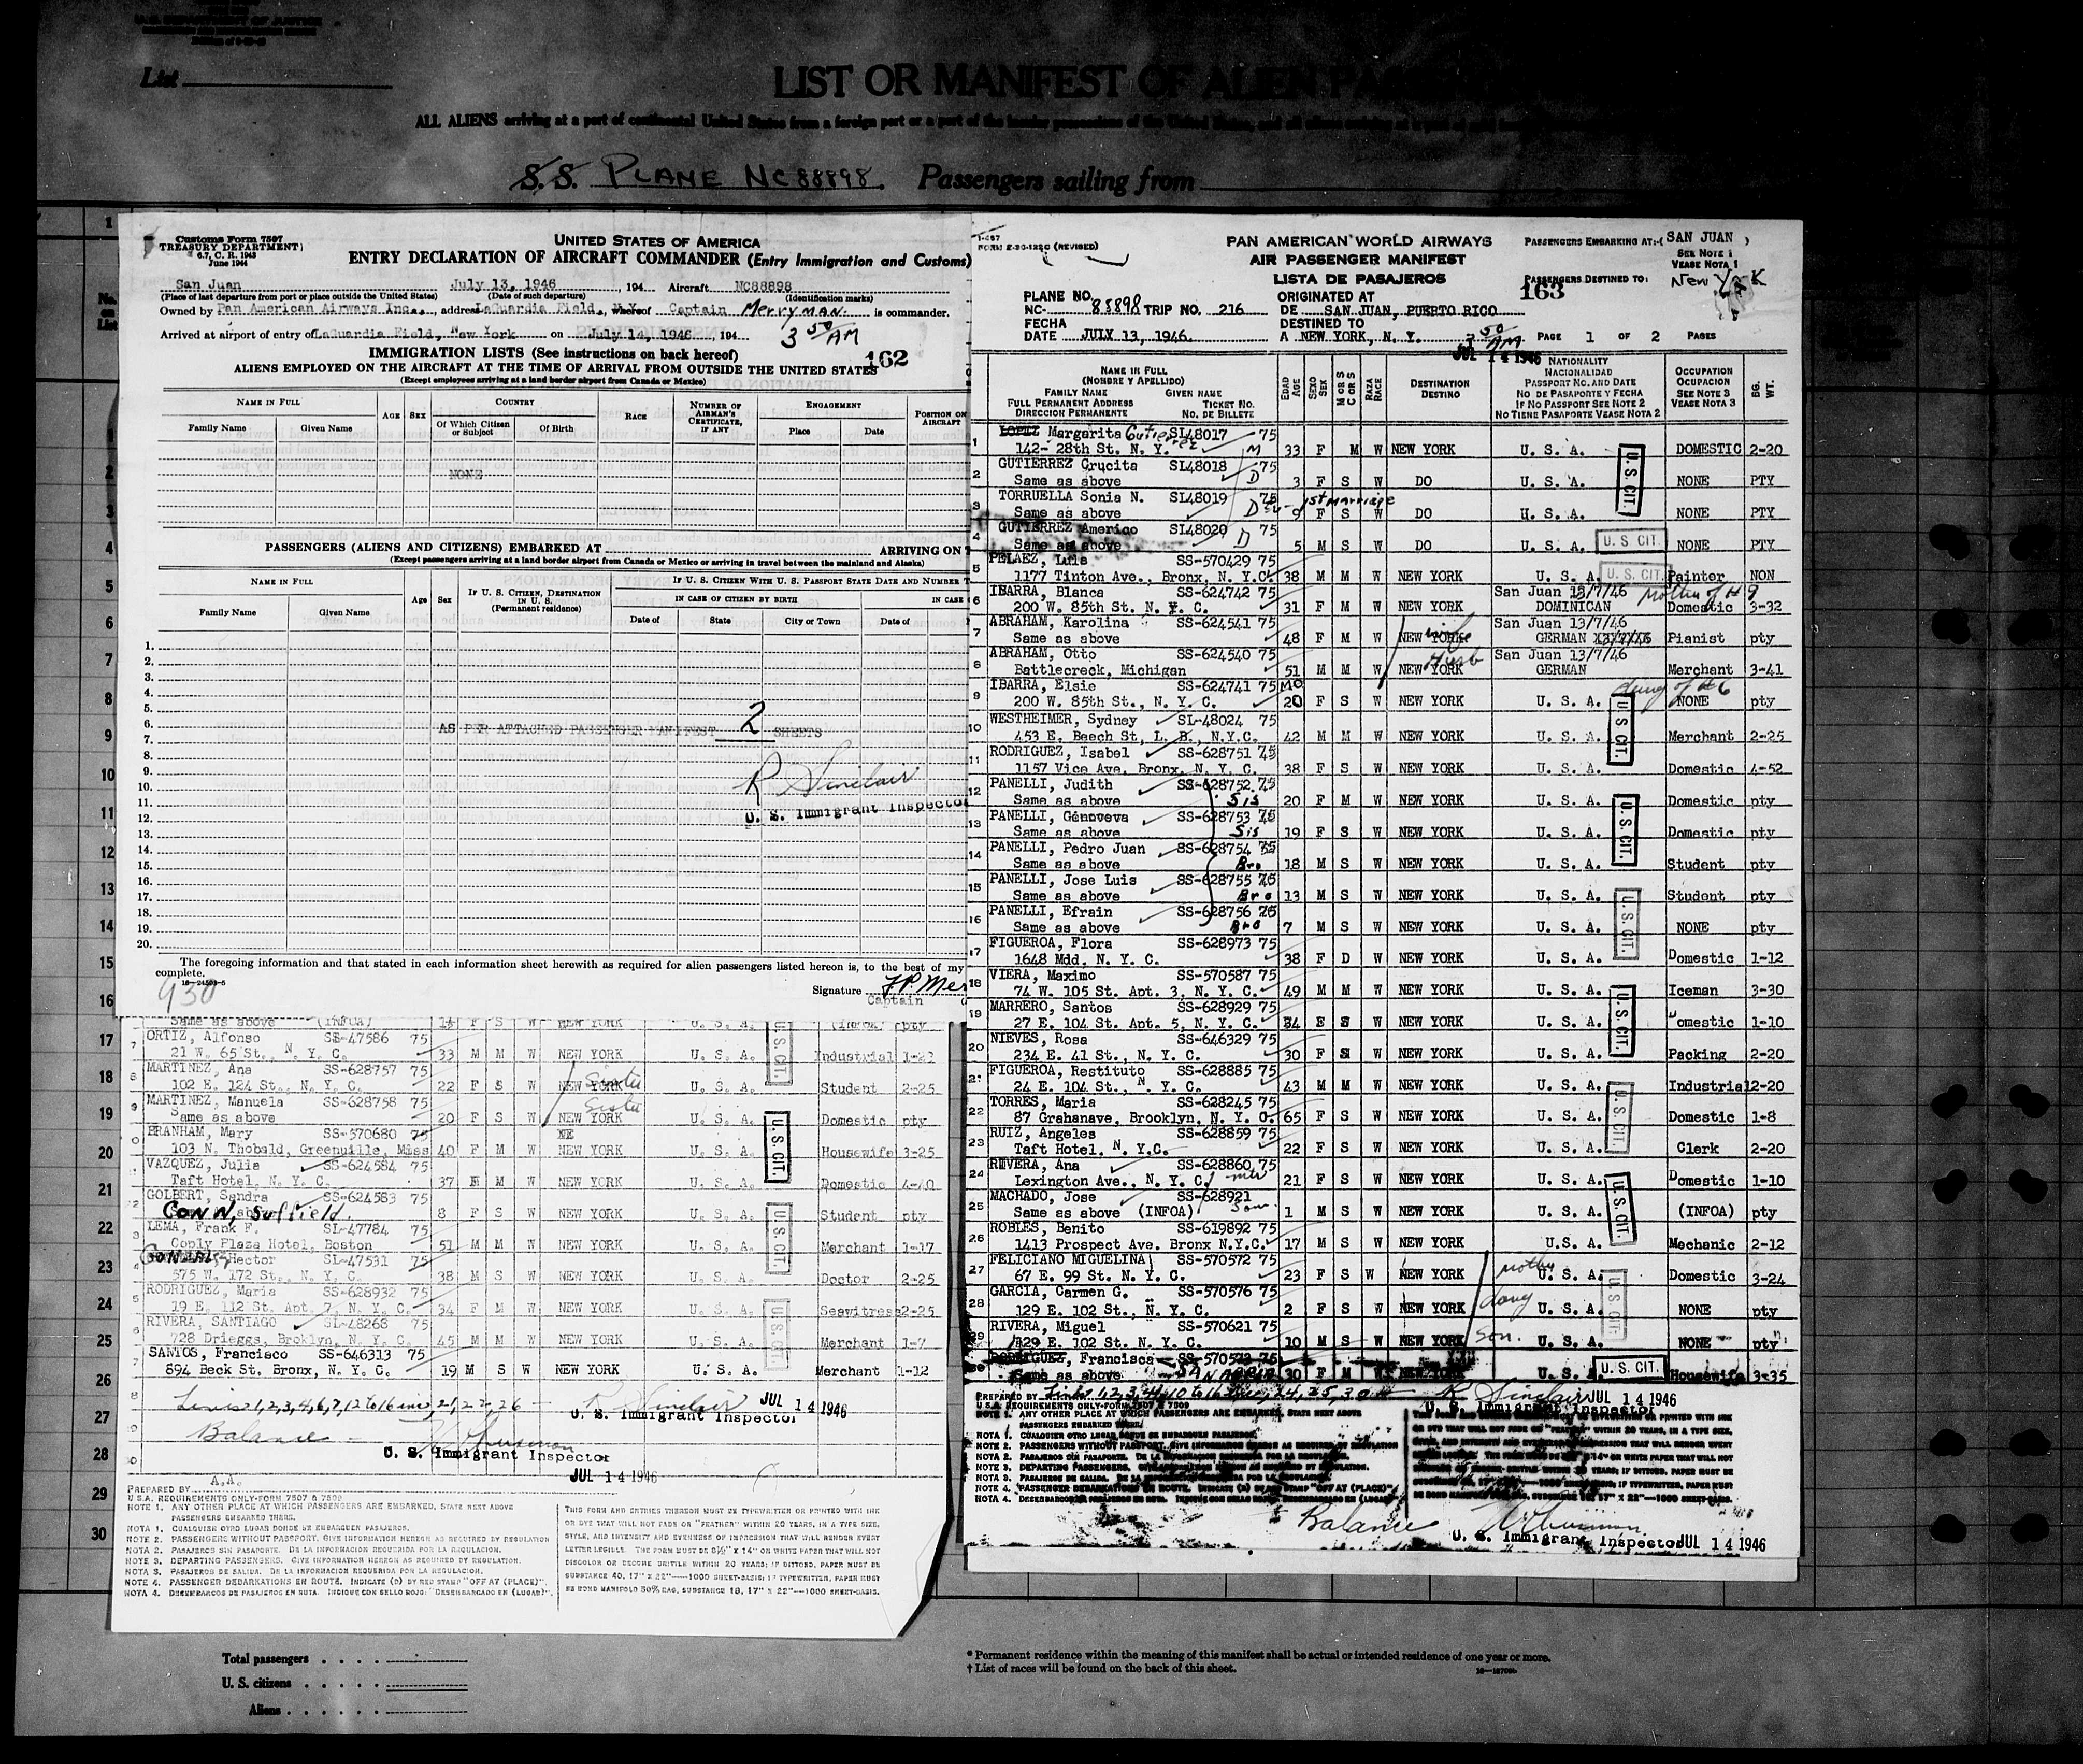 U.S. DEPARTMENT OF JUSTICE
List
LIST OR MANIFEST OF ALIEN
ALL ALIENS arriving at a port of continental United States from a foreign port or a port of the insular possessions of the United States, and all aliens arriving at a port of said
S.S. PLANE NC88898. Passengers sailing from
Customs Form 7507
TREASURY DEPARTMENT
6.7, C. R. 1943
June 1944
UNITED STATES OF AMERICA
ENTRY DECLARATION OF AIRCRAFT COMMANDER (Entry Immigration and Customs)
San Juan July 13, 1946 , 194 Aircraft NC88898
(Place of last departure from port or place outside the United States) (Date of such departure) (Identification marks)
Owned by Pan American Airways Inc., address LaGuardia Field, N.Y. whereof Captain MerryMAN. is commander.
Arrived at airport of entry of LaGuardia Field, New York on July 14, 1946 , 194 3 50 AM
IMMIGRATION LISTS (See instructions on back hereof)
162
ALIENS EMPLOYED ON THE AIRCRAFT AT THE TIME OF ARRIVAL FROM OUTSIDE THE UNITED STATES
(Except employees arriving at a land border airport from Canada or Mexico)
NAME IN FULL AGE SEX COUNTRY RACE NUMBER OF AIRMAN'S CERTIFICATE, IF ANY ENGAGEMENT POSITION ON AIRCRAFT
Family Name Given Name Of Which Citizen or Subject Of Birth Place Date
NONE
PASSENGERS (ALIENS AND CITIZENS) EMBARKED AT ARRIVING ON
(Except passengers arriving at a land border airport from Canada or Mexico or arriving in travel between the mainland and Alaska)
NAME IN FULL Age Sex IF U. S. CITIZEN, DESTINATION IN U. S. (Permanent residence) IF U. S. CITIZEN WITH U. S. PASSPORT STATE DATE AND NUMBER
IN CASE OF CITIZEN BY BIRTH IN CASE
Family Name Given Name Date of State City or Town Date of
1.
2.
3.
4.
5.
6. AS PER ATTACHED PASSENGER MANIFEST 2 SHEETS
7.
8.
9.
10. R Sinclair
11. U. S. Immigrant Inspector
12.
13.
14.
15.
16.
17.
18.
19.
20.
The foregoing information and that stated in each information sheet herewith as required for alien passengers listed hereon is, to the best of my
complete.
16—24508-5
930
Signature
Captain
Same as above (INFOA) F S W NEW YORK U. S. A. (INFOA) pty
7 ORTIZ, Alfonso SS-47586 75
21 W. 65 St., N. Y. C. 33 M M W NEW YORK U. S. A. Industrial 1-21
8 MARTINEZ, Ana SS-628757 75
102 E. 124 St., N. Y. C. 22 F S W NEW YORK Sister U. S. A. Student 2-25
9 MARTINEZ, Manuela SS-628758 75
Same as above 20 F S W NEW YORK Sister U. S. A. Domestic pty
BRANHAM, Mary SS-570680 75
103 N. Thobald, Greenuille, Miss 40 F M W NEW YORK U. S. A. Housewife 3-25
VAZQUEZ, Julia SS-624584 75
Taft Hotel, N. Y. C. 37 F M W NEW YORK U. S. A. Domestic 4-40
GOLBERT, Sandra SS-624583 75
CONN, Suffield. 8 F S W NEW YORK U. S. A. Student pty
LEMA, Frank F. SL-47784 75
Coply Plaza Hotel, Boston 51 M M W NEW YORK U. S. A. Merchant 1-17
Hector SL-47531 75
575 W. 172 St., N. Y. C. 38 M S W NEW YORK U. S. A. Doctor 2-25
5 RODRIGUEZ, Maria SS-628932 75
19 E. 112 St. Apt. 7, N. Y. C. 34 F M W NEW YORK U. S. A. 2-25
6 RIVERA, SANTIAGO SL-48268 75
728 Drieggs, Broklyn, N. Y. C. 45 M M W NEW YORK U. S. A. Merchant 1-7
7 SANTOS, Francisco SS-646313 75
894 Beck St. Bronx, N. Y. C. 19 M S W NEW YORK U. S. A. Merchant 1-12
U. S. CIT.
U. S. CIT.
U. S. CIT.
U. S. CIT.
Lines 1,2,3,4,6,7,12 to 16 inc, 21, 22, 26 — R Sinclair JUL 14 1946
U. S. Immigrant Inspector
Balance —
U. S. Immigrant Inspector
JUL 14 1946
A.A.
PREPARED BY
U.S.A. REQUIREMENTS ONLY-FORM 7507 & 7509
NOTE 1. ANY OTHER PLACE AT WHICH PASSENGERS ARE EMBARKED, STATE NEXT ABOVE
PASSENGERS EMBARKED THERE.
NOTA 1. CUALQUIER OTRO LUGAR DONDE SE EMBARQUEN PASAJEROS.
NOTE 2. PASSENGERS WITHOUT PASSPORT. GIVE INFORMATION HEREON AS REQUIRED BY REGULATION
NOTA 2. PASAJEROS SIN PASAPORTE. DE LA INFORMACION REQUERIDA POR LA REGULACION.
NOTE 3. DEPARTING PASSENGERS. GIVE INFORMATION HEREON AS REQUIRED BY REGULATION.
NOTA 3. PASAJEROS DE SALIDA. DE LA INFORMACION REQUERIDA POR LA REGULACION.
NOTE 4. PASSENGER DEBARKATIONS EN ROUTE. INDICATE (D) BY RED STAMP "OFF AT (PLACE)".
NOTA 4. DESEMBARCOS DE PASAJEROS EN RUTA. INDIQUE CON SELLO ROJO: "DESEMBARCADO EN (LUGAR)".
THIS FORM AND ENTRIES THEREON MUST BE TYPEWRITTEN OR PRINTED WITH INK
OR DYE THAT WILL NOT FADE OR "FEATHER" WITHIN 20 YEARS, IN A TYPE SIZE,
STYLE, AND INTENSITY AND EVENNESS OF IMPRESSION THAT WILL RENDER EVERY
LETTER LEGIBLE. THE FORM MUST BE 8½" X 14" ON WHITE PAPER THAT WILL NOT
DISCOLOR OR BECOME BRITTLE WITHIN 20 YEARS; IF DITTOED, PAPER MUST BE
SUBSTANCE 40, 17" X 22"—1000 SHEET-BASIS; IF TYPEWRITTEN, PAPER MUST
BE BOND MANIFOLD 50% RAG, SUBSTANCE 18, 17" X 22"—1000 SHEET-BASIS.
I-487
FORM 2-30-122C (REVISED)
PAN AMERICAN WORLD AIRWAYS
AIR PASSENGER MANIFEST
LISTA DE PASAJEROS
PASSENGERS EMBARKING AT:-( SAN JUAN )
SEE NOTE 1
VEASE NOTA 1
PASSENGERS DESTINED TO: New York
163
PLANE NO. NC- 88898 TRIP NO. 216
ORIGINATED AT DE SAN JUAN, PUERTO RICO
FECHA DATE JULY 13, 1946.
DESTINED TO A NEW YORK, N. Y. 3 50 AM
PAGE 1 OF 2 PAGES
JUL 14 1946
NAME IN FULL (NOMBRE Y APELLIDO)
FAMILY NAME GIVEN NAME
FULL PERMANENT ADDRESS TICKET NO.
DIRECCION PERMANENTE NO. DE BILLETE
EDAD AGE SEXO SEX M OR S C OR S RAZA RACE DESTINATION DESTINO
NATIONALITY NACIONALIDAD PASSPORT NO. AND DATE NO. DE PASAPORTE Y FECHA IF NO PASSPORT SEE NOTE 2 NO TIENE PASAPORTE VEASE NOTA 2
OCCUPATION OCUPACION SEE NOTE 3 VEASE NOTA 3 BG. WT.
1 LOPEZ Margarita Gutierrez SL48017 75
142- 28th St. N. Y. M 33 F M W NEW YORK U. S. A. DOMESTIC 2-20
2 GUTIERREZ Crucita SL48018 75
Same as above D 3 F S W DO U. S. A. NONE PTY
3 TORRUELLA Sonia N. SL48019 75
Same as above D 1st marriage 9 F S W DO U. S. A. NONE PTY
4 GUTIERREZ Americo SL48020 75
Same as above D 5 M S W DO U. S. A. U. S. CIT. NONE PTY
5 PELAEZ, Luis SS-570429 75
1177 Tinton Ave., Bronx, N. Y.C. 38 M M W NEW YORK U. S. A. U. S. CIT. Painter NON
6 IBARRA, Blanca SS-624742 75 San Juan 13/7/46 Mother of #9
200 W. 85th St. N. Y. C. 31 F M W NEW YORK DOMINICAN Domestic 3-32
7 ABRAHAM, Karolina SS-624541 75 San Juan 13/7/46
Same as above 48 F M W NEW YORK wife GERMAN Pianist pty
8 ABRAHAM, Otto SS-624540 75 San Juan 13/7/46
Battlecreck, Michigan 51 M M W NEW YORK Husb GERMAN Merchant 3-41
9 IBARRA, Elsie SS-624741 75 MO daug of #6
200 W. 85th St., N. Y. C. 20 F S W NEW YORK U. S. A. NONE pty
10 WESTHEIMER, Sydney SL-48024 75
453 E. Beech St, L. B., N.Y.C. 42 M M W NEW YORK U. S. A. Merchant 2-25
11 RODRIGUEZ, Isabel SS-628751 75
1157 Vice Ave, Bronx, N. Y. C. 38 F S W NEW YORK U. S. A. Domestic 4-52
12 PANELLI, Judith SS-628752 75
Same as above Sis 20 F M W NEW YORK U. S. A. Domestic pty
13 PANELLI, Génoveva SS-628753 75
Same as above Sis 19 F S W NEW YORK U. S. A. Domestic pty
14 PANELLI, Pedro Juan SS-628754 75
Same as above Bro 18 M S W NEW YORK U. S. A. Student pty
15 PANELLI, Jose Luis SS-628755 75
Same as above Bro 13 M S W NEW YORK U. S. A. Student pty
16 PANELLI, Efrain SS-628756 75
Same as above Bro 7 M S W NEW YORK U. S. A. NONE pty
17 FIGUEROA, Flora SS-628973 75
1648 Mdd, N. Y. C. 38 F D W NEW YORK U. S. A. Domestic 1-12
18 VIERA, Maximo SS-570587 75
74 W. 105 St. Apt. 3, N. Y. C. 49 M M W NEW YORK U. S. A. Iceman 3-30
19 MARRERO, Santos SS-628929 75
27 E. 104 St. Apt. 5, N. Y. C. 34 F S W NEW YORK U. S. A. Domestic 1-10
20 NIEVES, Rosa SS-646329 75
234 E. 41 St., N. Y. C. 30 F S W NEW YORK U. S. A. Packing 2-20
21 FIGUEROA, Restituto SS-628885 75
24 E. 104 St., N. Y. C. 43 M M W NEW YORK U. S. A. Industrial 2-20
22 TORRES, Maria SS-628245 75
87 Grahanave, Brooklyn, N. Y. C. 65 F S W NEW YORK U. S. A. Domestic 1-8
23 RUIZ, Angeles SS-628859 75
Taft Hotel, N. Y.C. 22 F S W NEW YORK U. S. A. Clerk 2-20
24 RIVERA, Ana SS-628860 75
Lexington Ave., N. Y. C. 21 F S W NEW YORK U. S. A. Domestic 1-10
25 MACHADO, Jose SS-628921
Same as above (INFOA) Son 1 M S W NEW YORK U. S. A. (INFOA) pty
26 ROBLES, Benito SS-619892 75
1413 Prospect Ave. Bronx N.Y.C. 17 M S W NEW YORK U.S. A. Mechanic 2-12
27 FELICIANO MIGUELINA SS-570572 75
67 E. 99 St. N. Y. C. 23 F S W NEW YORK mother U. S. A. Domestic 3-24
28 GARCIA, Carmen G. SS-570576 75
129 E. 102 St., N. Y. C. 2 F S W NEW YORK daug U. S. A. NONE pty
29 RIVERA, Miguel SS-570621 75
129 E. 102 St. N. Y. C. 10 M S W NEW YORK Son. U. S. A. NONE pty
30 RODRIGUEZ, Francisca 75
Same as above 30 F M W NEW YORK U. S. A. U. S. CIT. Housewife 3-35
U. S. CIT.
U. S. CIT.
U. S. CIT.
U. S. CIT.
U. S. CIT.
U. S. CIT.
U. S. CIT.
U. S. CIT.
PREPARED BY R Sinclair JUL 14 1946
U. S. Immigrant Inspector
U.S.A. REQUIREMENTS ONLY-FORM 7507 & 7509
NOTE 1. ANY OTHER PLACE AT WHICH PASSENGERS ARE EMBARKED, STATE NEXT ABOVE
PASSENGERS EMBARKED THERE.
NOTA 1. CUALQUIER OTRO LUGAR DONDE SE EMBARQUEN PASAJEROS.
NOTE 2. PASSENGERS WITHOUT PASSPORT. GIVE INFORMATION HEREON AS REQUIRED BY REGULATION
NOTA 2. PASAJEROS SIN PASAPORTE. DE LA INFORMACION REQUERIDA POR LA REGULACION.
NOTE 3. DEPARTING PASSENGERS. GIVE INFORMATION HEREON AS REQUIRED BY REGULATION.
NOTA 3. PASAJEROS DE SALIDA. DE LA INFORMACION REQUERIDA POR LA REGULACION.
NOTE 4. PASSENGER DEBARKATIONS EN ROUTE. INDICATE (D) BY RED STAMP "OFF AT (PLACE)".
Balance
U. S. Immigrant Inspector JUL 14 1946
Total passengers
U. S. citizens
Aliens
* Permanent residence within the meaning of this manifest shall be actual or intended residence of one year or more.
† List of races will be found on the back of this sheet.